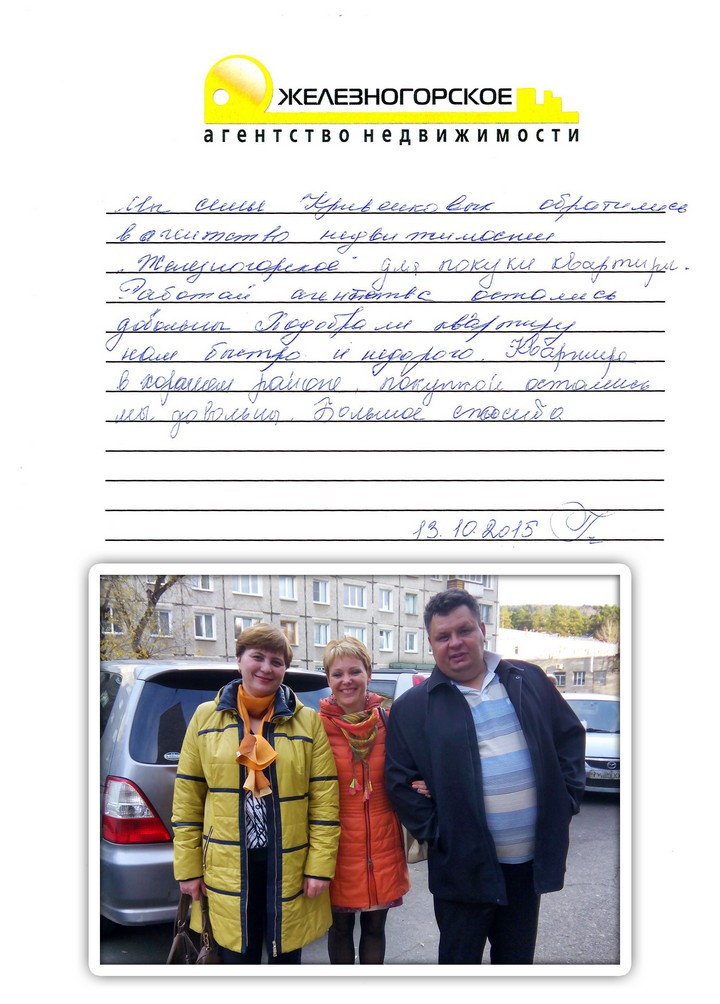 ЖЕЛЕЗНОГОРСКОЕ
агентство недвижимости
Мы семья Кривенковых обратились
в агентство недвижимости
"Железногорское" для покуки квартиры.
Работай агентства остались
довольны Подобрали квартиру
нам быстро и недорого. Квартира
в хорошем районе, покупкой остались
мы довольны. Большое спасибо
13.10.2015